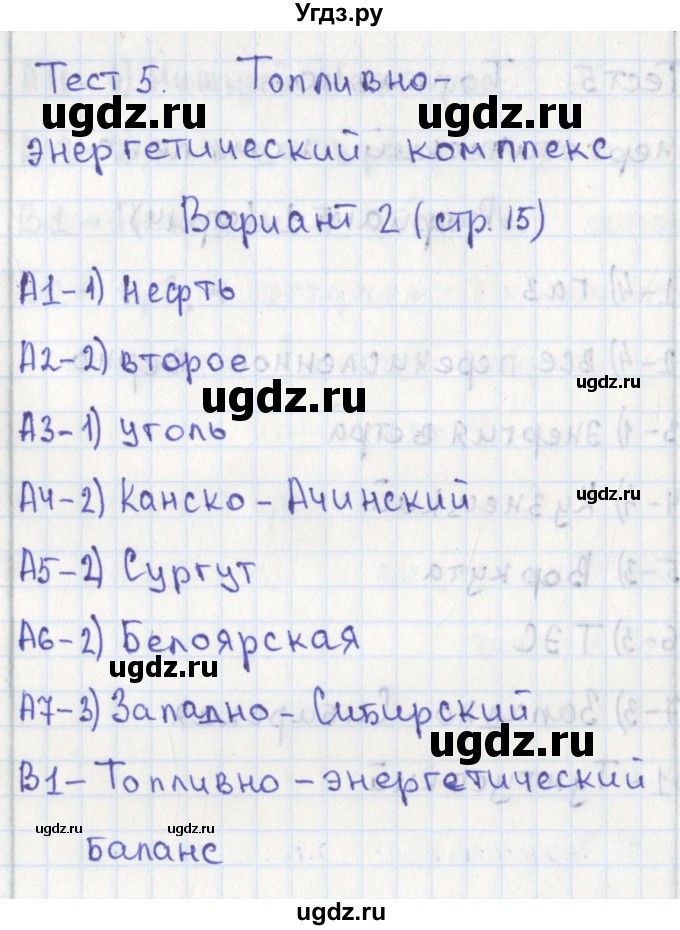 Угдз.ру
Тест 5. Топливно-
ugdz.ru ugdz.ru
энергетический комплекс
Вариант 2 (стр. 15)
А1-1) Нефть
А2-2) второе
ugdz.ru
ugdz.ru
А3-1) уголь
А4-2) Канско-Ачинский
ugdz.ru
А5-2) Сургут
А6-2) Белоярская
ugdz.ru
А7-3) Западно-Сибирский
ugdz.ru
В1-Топливно-энергетический
ugdz.ru ugdz.ru
баланс
ugdz.ru